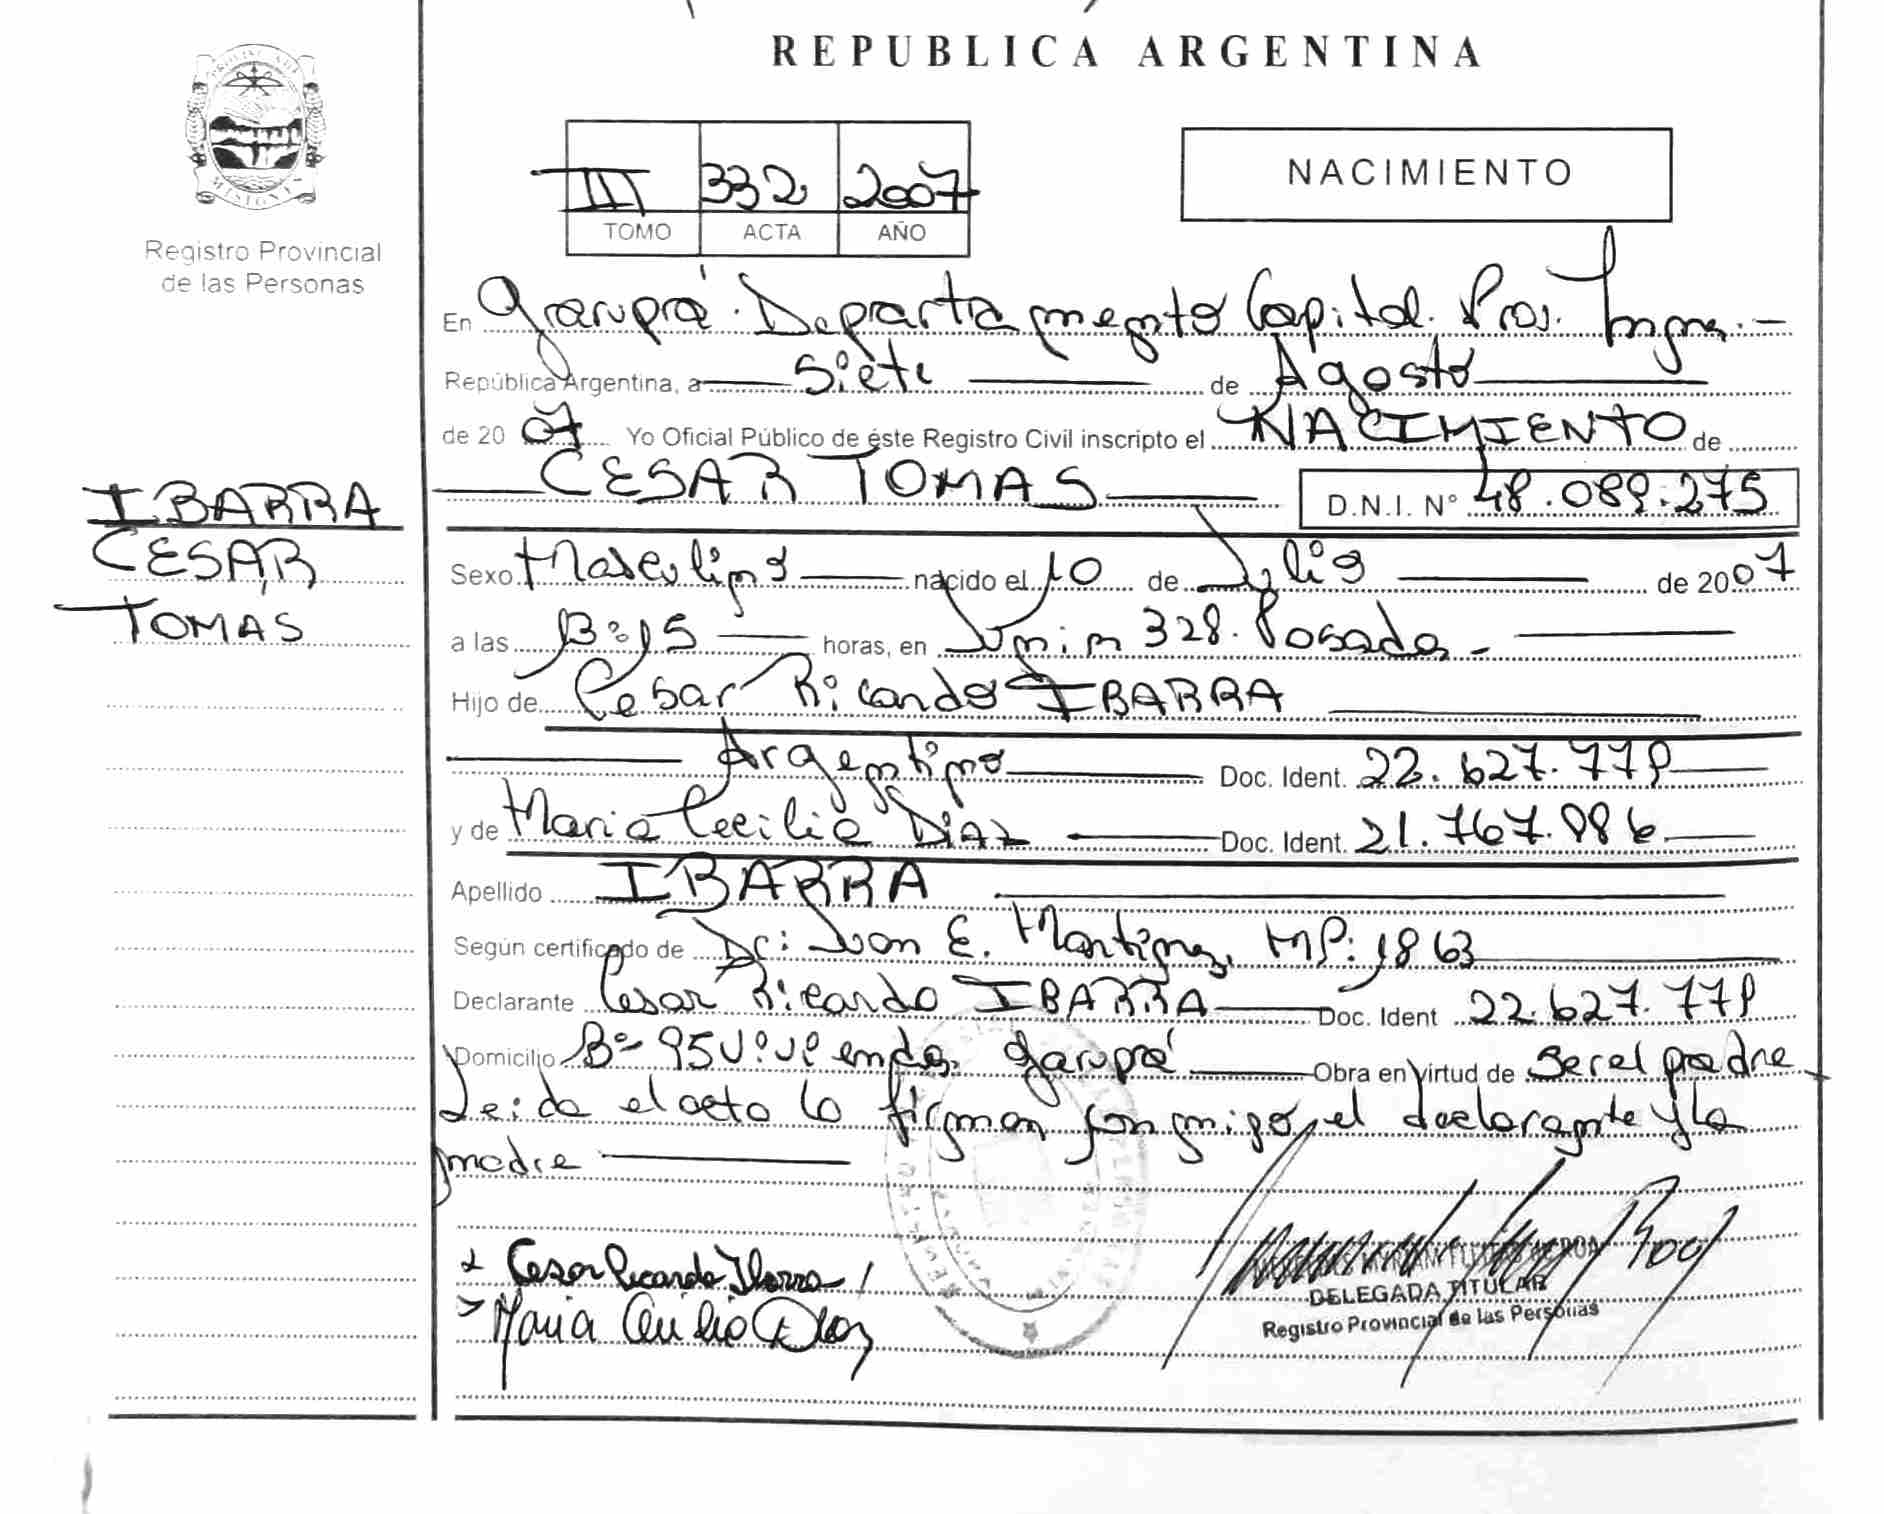 REPUBLICA ARGENTINA
MISIONES
Registro Provincial
de las Personas
III 332 2007
TOMO ACTA AÑO
NACIMIENTO
En Garupá. Departamento Capital. Pros. Mgnes.-
República Argentina, a siete de Agosto
de 2007 Yo Oficial Público de éste Registro Civil inscripto el NACIMIENTO de
CESAR TOMAS D.N.I. Nº 48.089.275
IBARRA
CESAR
TOMAS
Sexo Masculino nacido el 10 de Julio de 2007
a las 13:15 horas, en Junin 328. Posadas-
Hijo de Cesar Ricardo IBARRA
Argentino Doc. Ident. 22.627.779
y de Maria Cecilia DIAZ Doc. Ident. 21.767.986
Apellido IBARRA
Según certificado de Dr: Juan E. Martinez, MP: 1863
Declarante Cesar Ricardo IBARRA Doc. Ident 22.627.779
Domicilio Bº 95 Viviendas Garupá Obra en virtud de ser el padre
Leida el acta la firman conmigo, el declarante y la
madre
Cesar Ricardo Ibarra
Maria Cecilia Diaz
DELEGADA TITULAR
Registro Provincial de las Personas